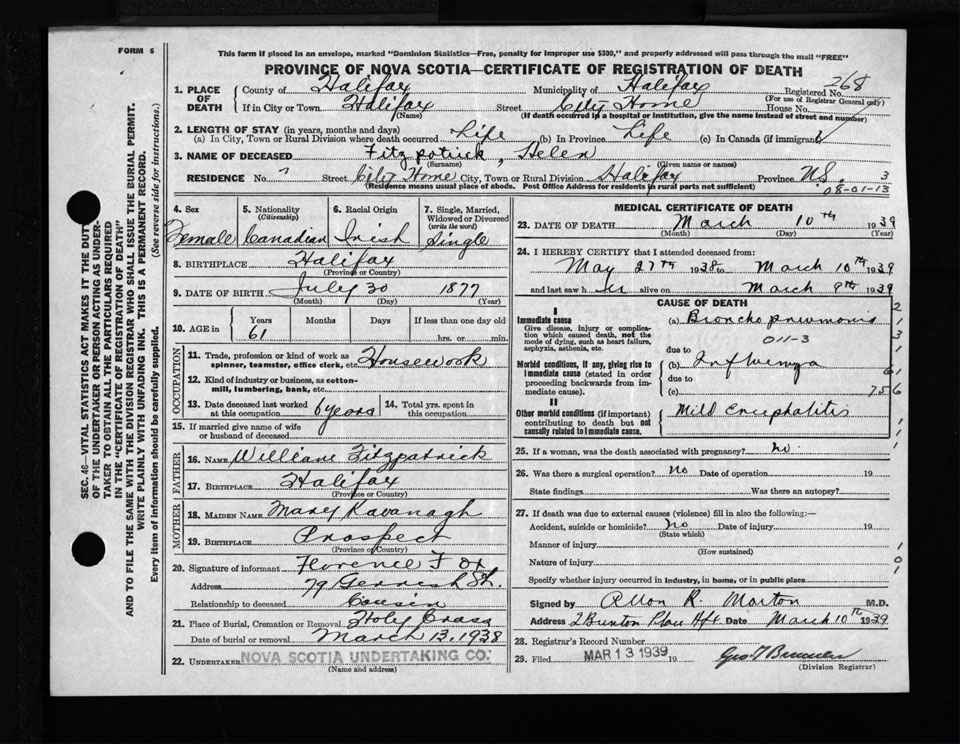 FORM 6
This form if placed in an envelope, marked "Dominion Statistics—Free, penalty for improper use $300," and properly addressed will pass through the mail "FREE"
PROVINCE OF NOVA SCOTIA—CERTIFICATE OF REGISTRATION OF DEATH
SEC. 46—VITAL STATISTICS ACT MAKES IT THE DUTY
OF THE UNDERTAKER OR PERSON ACTING AS UNDER-
TAKER TO OBTAIN ALL THE PARTICULARS REQUIRED
IN THE "CERTIFICATE OF REGISTRATION OF DEATH"
AND TO FILE THE SAME WITH THE DIVISION REGISTRAR WHO SHALL ISSUE THE BURIAL PERMIT.
WRITE PLAINLY WITH UNFADING INK. THIS IS A PERMANENT RECORD.
Every item of information should be carefully supplied. (See reverse side for instructions.)
1. PLACE OF DEATH County of Halifax Municipality of Halifax Registered No. 268
(For use of Registrar General only)
If in City or Town Halifax Street City Home House No.
(Name) (If death occurred in a hospital or institution, give the name instead of street and number)
2. LENGTH OF STAY (in years, months and days)
(a) In City, Town or Rural Division where death occurred Life (b) In Province Life (c) In Canada (if immigrant)
3. NAME OF DECEASED Fitzpatrick, Helen
(Surname) (Given name or names)
RESIDENCE No. Street City Home City, Town or Rural Division Halifax Province N.S. 3
(Residence means usual place of abode. Post Office Address for residents in rural parts not sufficient) 08-01-13
4. Sex Female
5. Nationality (Citizenship) Canadian
6. Racial Origin Irish
7. Single, Married, Widowed or Divorced (write the word) Single
8. BIRTHPLACE Halifax
(Province or Country)
9. DATE OF BIRTH July 30 1877
(Month) (Day) (Year)
10. AGE in Years Months Days If less than one day old
61 hrs. or min.
OCCUPATION
11. Trade, profession or kind of work as spinner, teamster, office clerk, etc. Housework
12. Kind of industry or business, as cotton-mill, lumbering, bank, etc.
13. Date deceased last worked at this occupation 6 years 14. Total yrs. spent in this occupation.
15. If married give name of wife or husband of deceased
FATHER
16. NAME William Fitzpatrick
17. BIRTHPLACE Halifax
(Province or Country)
MOTHER
18. MAIDEN NAME Mary Kavanagh
19. BIRTHPLACE Prospect
(Province or Country)
20. Signature of informant Florence Fox
Address 79 Gerrish St.
Relationship to deceased Cousin
21. Place of Burial, Cremation or Removal Holy Cross
Date of burial or removal March 13, 1938
22. UNDERTAKER NOVA SCOTIA UNDERTAKING CO.
(Name and address)
MEDICAL CERTIFICATE OF DEATH
23. DATE OF DEATH March 10th 1939
(Month) (Day) (Year)
24. I HEREBY CERTIFY that I attended deceased from:
May 27th 1938 to March 10th 1939
and last saw her alive on March 9th 1939
CAUSE OF DEATH
I
Immediate cause (a) Broncho pneumonia
Give disease, injury or complication which caused death, not the mode of dying, such as heart failure, asphyxia, asthenia, etc.
011-3
due to
Morbid conditions, if any, giving rise to immediate cause (stated in order proceeding backwards from immediate cause). (b) Influenza
due to
(c) 756
II
Other morbid conditions (if important) contributing to death but not causally related to immediate cause. Mild Encephalitis
25. If a woman, was the death associated with pregnancy? no
26. Was there a surgical operation? No Date of operation 19
State findings Was there an autopsy?
27. If death was due to external causes (violence) fill in also the following:—
Accident, suicide or homicide? No Date of injury 19
(State which)
Manner of injury
(How sustained)
Nature of injury
Specify whether injury occurred in industry, in home, or in public place
Signed by R. Morton M.D.
Address 2 Hfx Date March 10th 1939
28. Registrar's Record Number
29. Filed MAR 13 1939 19
(Division Registrar)